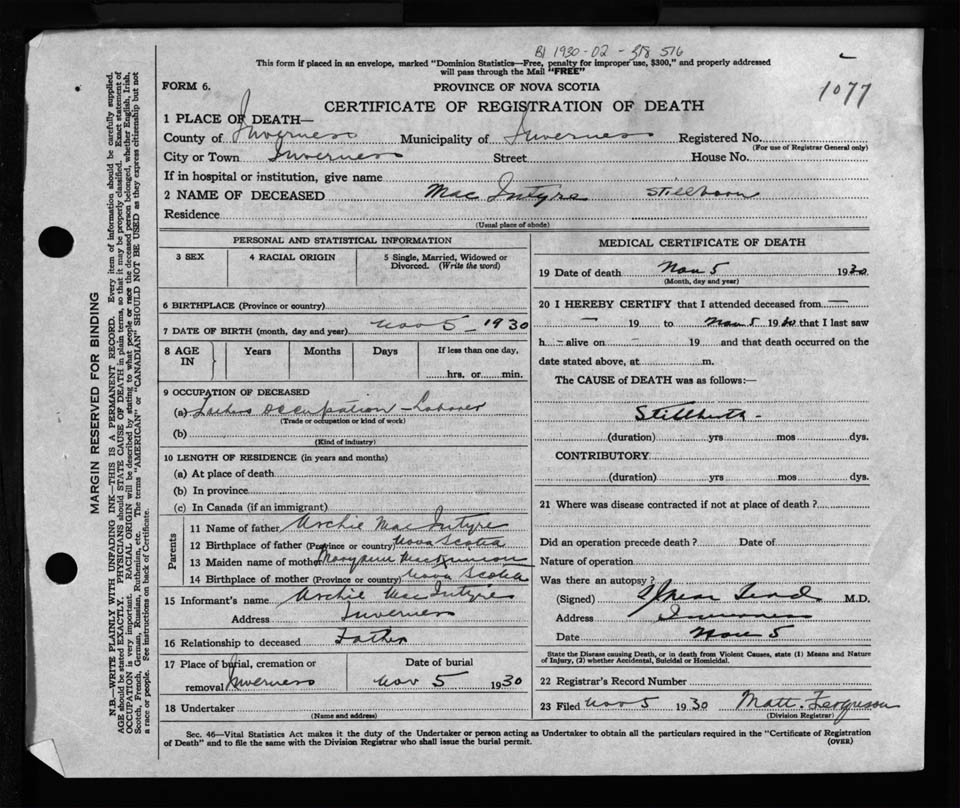 B1 1930-02-
This form if placed in an envelope, marked "Dominion Statistics—Free, penalty for improper use, $300," and properly addressed
will pass through the Mail "FREE"
1077
FORM 6.
PROVINCE OF NOVA SCOTIA
CERTIFICATE OF REGISTRATION OF DEATH
1 PLACE OF DEATH—
County of Inverness Municipality of Inverness Registered No.
(For use of Registrar General only)
City or Town Inverness Street House No.
If in hospital or institution, give name
2 NAME OF DECEASED Mac Intyre Stillborn
Residence
(Usual place of abode)
PERSONAL AND STATISTICAL INFORMATION
3 SEX 4 RACIAL ORIGIN 5 Single, Married, Widowed or
Divorced. (Write the word)
6 BIRTHPLACE (Province or country)
7 DATE OF BIRTH (month, day and year) Nov 5 - 1930
8 AGE IN Years Months Days If less than one day,
hrs. or min.
9 OCCUPATION OF DECEASED
(a) Fathers occupation - Laborer
(Trade or occupation or kind of work)
(b)
(Kind of industry)
10 LENGTH OF RESIDENCE (in years and months)
(a) At place of death
(b) In province
(c) In Canada (if an immigrant)
Parents
11 Name of father Archie MacIntyre
12 Birthplace of father (Province or country) Nova Scotia
13 Maiden name of mother
14 Birthplace of mother (Province or country) Nova Scotia
15 Informant's name Archie MacIntyre
Address Inverness
16 Relationship to deceased Father
17 Place of burial, cremation or Date of burial
removal Inverness Nov 5 1930
18 Undertaker
(Name and address)
MEDICAL CERTIFICATE OF DEATH
19 Date of death Nov 5 1930
(Month, day and year)
20 I HEREBY CERTIFY that I attended deceased from —
— 19 to Nov 5 1930 that I last saw
h — alive on — 19 and that death occurred on the
date stated above, at m.
The CAUSE of DEATH was as follows:—
Stillbirth -
(duration) yrs mos dys.
CONTRIBUTORY
(duration) yrs mos dys.
21 Where was disease contracted if not at place of death?
Did an operation precede death? Date of
Nature of operation
Was there an autopsy?
(Signed) M.D.
Address Inverness
Date Nov 5
State the Disease causing Death, or in death from Violent Causes, state (1) Means and Nature
of Injury, (2) whether Accidental, Suicidal or Homicidal.
22 Registrar's Record Number
23 Filed Nov 5 1930 Matt. Ferguson
(Division Registrar)
Sec. 46—Vital Statistics Act makes it the duty of the Undertaker or person acting as Undertaker to obtain all the particulars required in the "Certificate of Registration
of Death" and to file the same with the Division Registrar who shall issue the burial permit. (OVER)
MARGIN RESERVED FOR BINDING
N.B.—WRITE PLAINLY WITH UNFADING INK—THIS IS A PERMANENT RECORD. Every item of information should be carefully supplied.
AGE should be stated EXACTLY. PHYSICIANS should STATE CAUSE OF DEATH in plain terms, so that it may be properly classified. Exact statement of
OCCUPATION is very important. RACIAL ORIGIN will be described by stating to what people or race the deceased person belonged, whether English, Irish,
Scotch, French, German, Russian, Ruthenian, etc. The terms "AMERICAN" or "CANADIAN" SHOULD NOT BE USED as they express citizenship but not
a race or people. See instructions on back of Certificate.